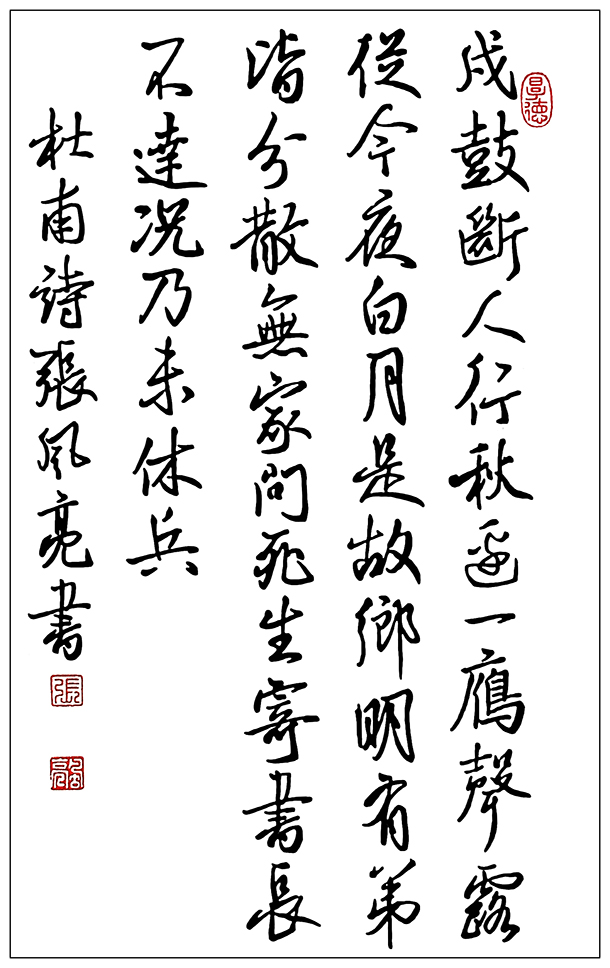 戍鼓斷人行秋邊一鴈聲露
從今夜白月是故鄉明有弟
皆分散無家問死生寄書長
不達况乃未休兵
杜甫詩張風亮書
張